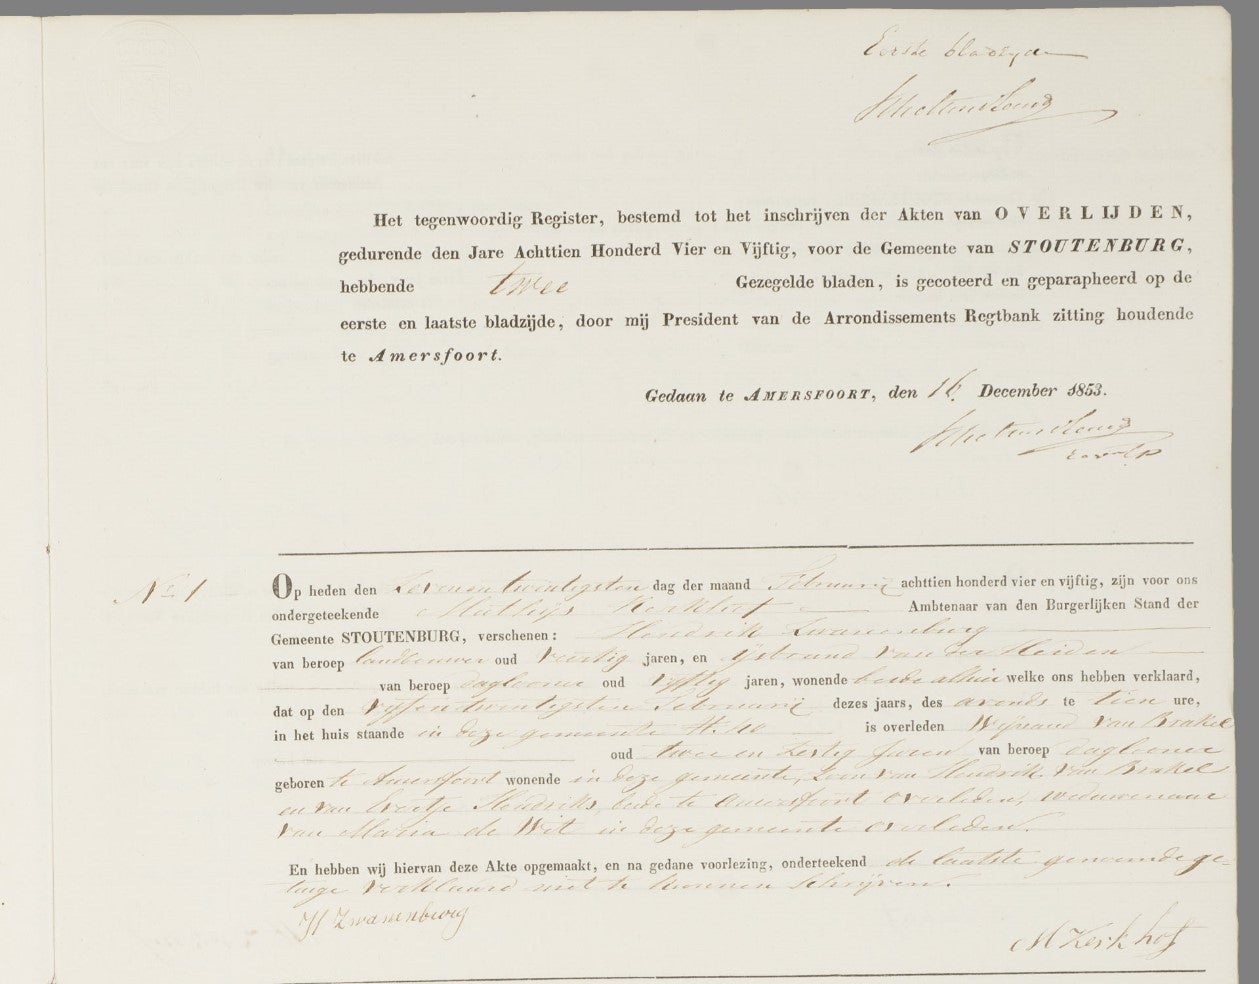 Eerste bladzijde
Het tegenwoordig Register, bestemd tot het inschrijven der Akten van OVERLIJDEN,
gedurende den Jare Achttien Honderd Vier en Vijftig, voor de Gemeente van STOUTENBURG,
hebbende twee Gezegelde bladen, is gecoteerd en geparapheerd op de
eerste en laatste bladzijde, door mij President van de Arrondissements Regtbank zitting houdende
te Amersfoort.
Gedaan te AMERSFOORT, den 16 December 1853.
No 1
Op heden den Zevenentwintigsten dag der maand Februarij achttien honderd vier en vijftig, zijn voor ons
ondergeteekende Matthijs Kerkhof Ambtenaar van den Burgerlijken Stand der
Gemeente STOUTENBURG, verschenen: Hendrik Zwanenburg
van beroep landbouwer oud veertig jaren, en Ysbrand van der Heiden
van beroep daglooner oud vyftig jaren, wonende beide alhier welke ons hebben verklaard,
dat op den vyfentwintigsten Februarij dezes jaars, des avonds te tien ure,
in het huis staande in deze gemeente is overleden Wijnand van Brakel
oud twee en zestig Jaren van beroep daglooner
geboren te Amersfoort wonende in deze gemeente, Zoon van Hendrik van Brakel
en van Evertje Hendriks, beide te Amersfoort overleden, weduwenaar
van Maria de Wit in deze gemeente overleden.
En hebben wij hiervan deze Akte opgemaakt, en na gedane voorlezing, onderteekend de laatste genoemde ge-
tuige verklaard niet te kunnen Schrijven.
H Zwanenburg
M Kerkhof